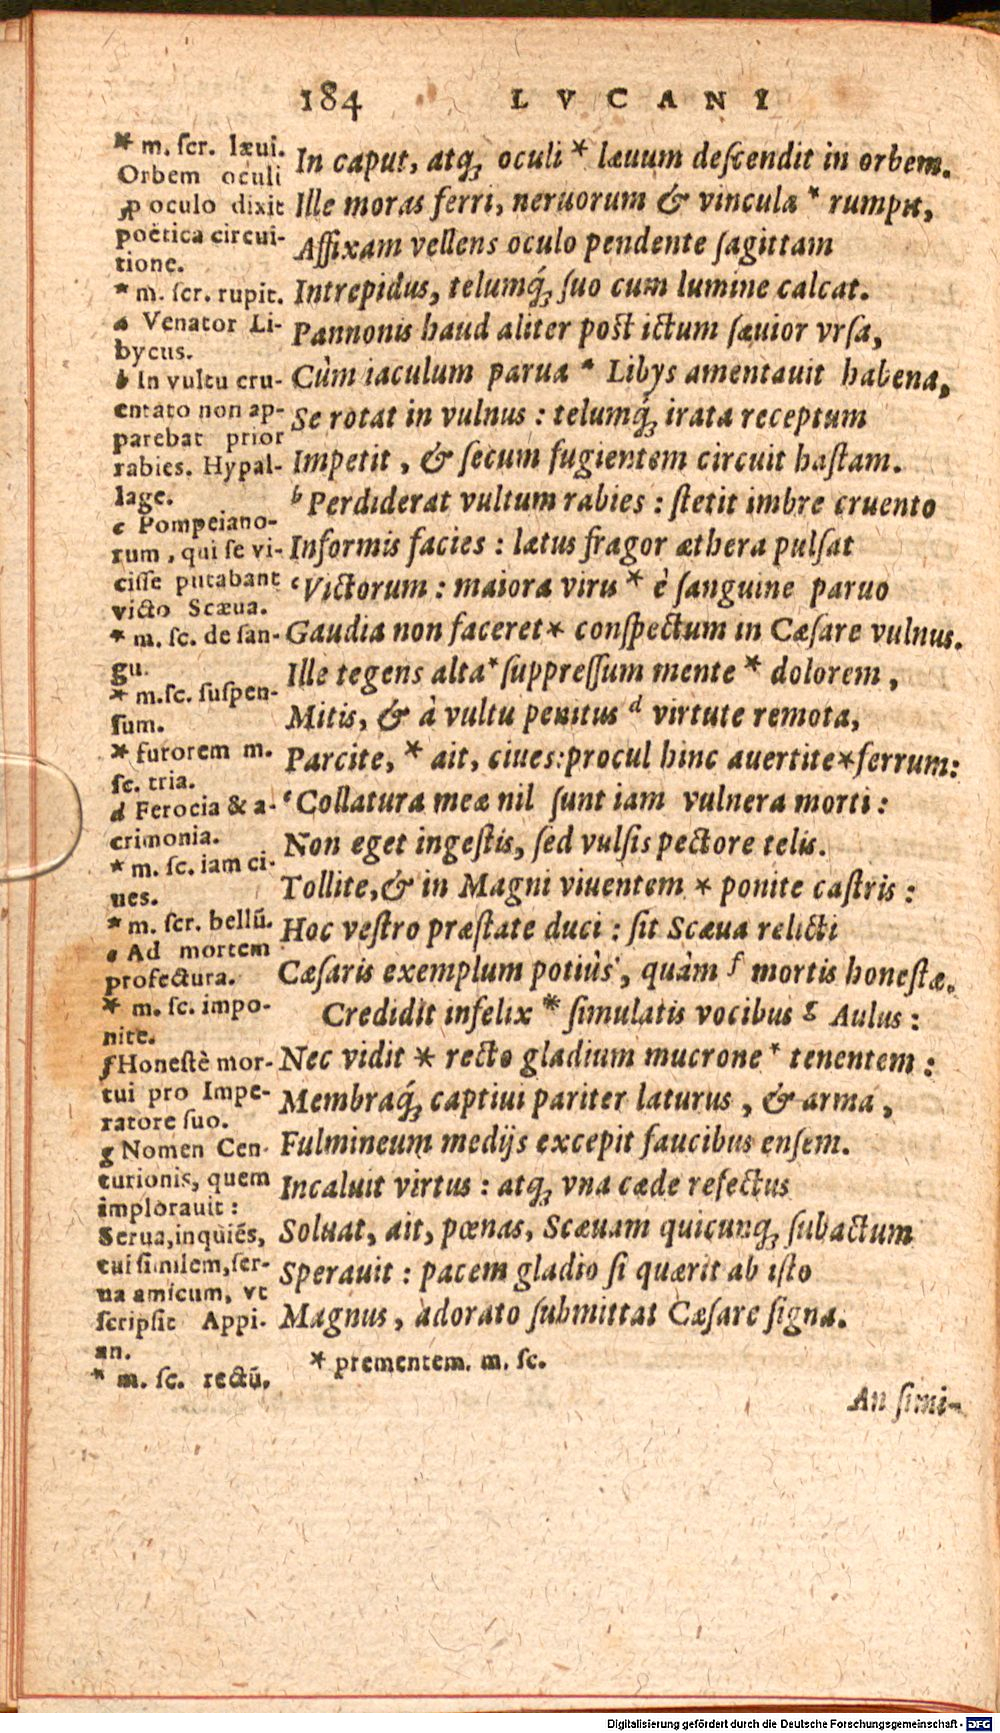 184 LVCANI
* m. scr. læui.
Orbem oculi
ꝓ oculo dixit
poëtica circui-
tione.
* m. scr. rupit.
a Venator Li-
bycus.
b In vultu cru-
entato non ap-
parebat prior
rabies. Hypal-
lage.
c Pompeiano-
rum, qui se vi-
cisse putabant
victo Scæua.
* m. sc. de san-
gu.
* m.sc. suspen-
sum.
* furorem m.
sc. tria.
d Ferocia & a-
crimonia.
* m. sc. iam ci-
ues.
* m. scr. bellū.
e Ad mortem
profectura.
* m. sc. impo-
nite.
f Honestè mor-
tui pro Impe-
ratore suo.
g Nomen Cen-
turionis, quem
implorauit:
Serua, inquiés,
tui similem, ser-
ua amicum, vt
scripsit Appi-
an.
* m. sc. rectū.
In caput, atq; oculi * læuum descendit in orbem.
Ille moras ferri, neruorum & vincula * rumpit,
Affixam vellens oculo pendente sagittam
Intrepidus, telumq́; suo cum lumine calcat.
Pannonis haud aliter post ictum sæuior vrsa,
Cùm iaculum parua a Libys amentauit habena,
Se rotat in vulnus: telumq́; irata receptum
Impetit, & secum fugientem circuit hastam.
b Perdiderat vultum rabies: stetit imbre cruento
Informis facies: lætus fragor æthera pulsat
c Victorum: maiora viru * è sanguine paruo
Gaudia non faceret * conspectum in Cæsare vulnus.
Ille tegens alta * suppressum mente * dolorem,
Mitis, & à vultu penitus d virtute remota,
Parcite, * ait, ciues: procul hinc auertite * ferrum:
e Collatura meæ nil sunt iam vulnera morti:
Non eget ingestis, sed vulsis pectore telis.
Tollite, & in Magni viuentem * ponite castris:
Hoc vestro præstate duci: sit Scæua relicti
Cæsaris exemplum potiùs, quàm f mortis honestæ.
Credidit infelix * simulatis vocibus g Aulus:
Nec vidit * recto gladium mucrone * tenentem:
Membraq́; captiui pariter laturus, & arma,
Fulmineum medijs excepit faucibus ensem.
Incaluit virtus: atq; vna cæde refectus
Soluat, ait, pœnas, Scæuam quicunq; subactum
Sperauit: pacem gladio si quærit ab isto
Magnus, adorato submittat Cæsare signa.
* prementem. m. sc.
An simi-
Digitalisierung gefördert durch die Deutsche Forschungsgemeinschaft - DFG